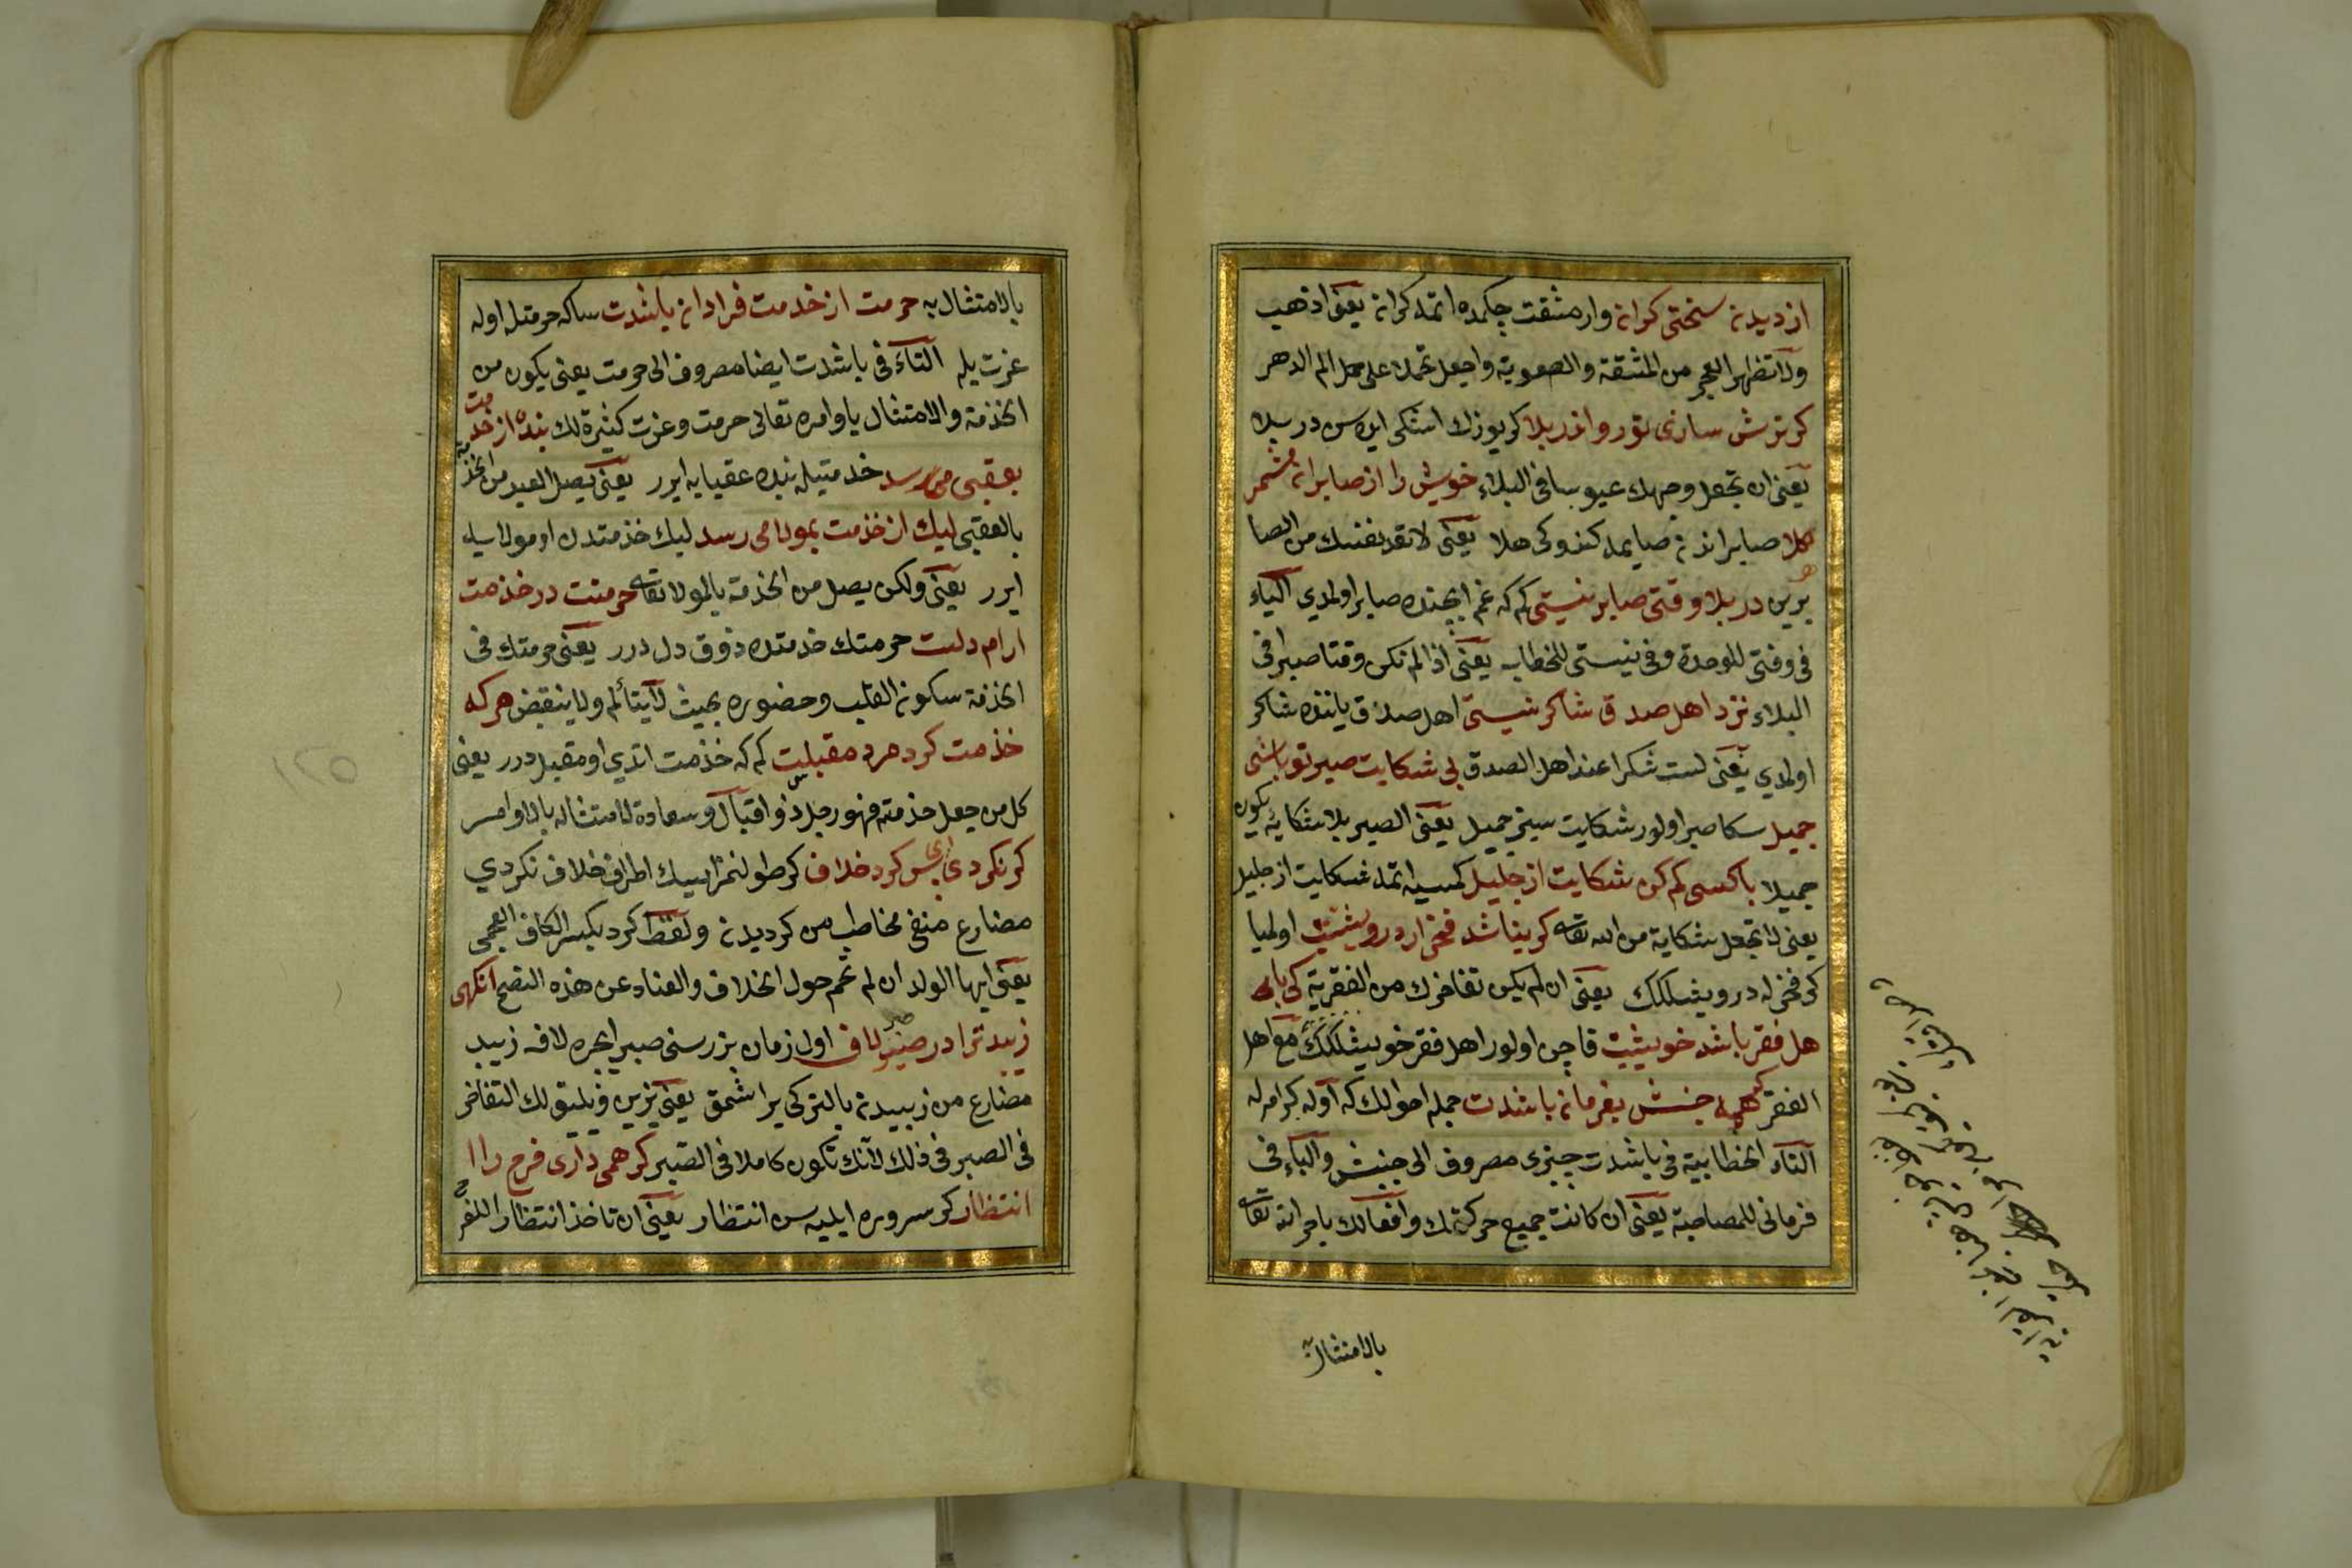 از دیدن سختی کرانه وار مشقت چکمده اتمه کرانه یعنی اذهب
ولا تظهر العجر من المشقة والصعوبة واجعل تحملا على حمل الم الدهر
کر ترش سازی تو رو اندر بلا کر یوزك اشکی ایده سن در بلا
یعنی ان تجعل وجهك عبوسا فی البلاء خویش را از صابرانه مشمر
هلا صابرانذنه صایمه کندوکی هلا یعنی لا تعد نفسك من الصا
برین در بلا وقتی صابر نیستی کم که غم ایچنده صابر اولمدی الیاء
فی وقتی للوحدة وفی نیستی للخطاب یعنی اذا لم تکن وقتا صبرا فی
البلاء نزد اهل صدق شاکر نیستی اهل صدق یاننده شاکر
اولمدی یعنی لست شکرا عند اهل الصدق بی شکایت صبر تو باشد
جمیل سکا صبر اولور شکایت سیز جمیل یعنی الصبر بلا شکایة یکون
جمیلا با کسی کم کن شکایت از جلیل کمسیه اتمه شکایت از جلیل
یعنی لا تجعل شکایة من الله تعه کر نباشد فخر از درویشیت اولمیا
کر فخر له درویشلکك یعنی ان لم یکن تفاخرك من الفقریة کی با
هل فقر باشد خویشیت قاچن اولور اهل فقر خویشلکك مع اهل
الفقر کر همه جنبش بفرمان باشدت جمله احوالك که اوله کر امر له
التاء الخطابیة فی باشدت چیزی مصروف الی جنبش والباء فی
فرمانی للمصاحبة یعنی ان کانت جمیع حرکتك وافعالك بامر الله تعه
بالامتثال به
بالامتثال به حرمت از خدمت فراوان باشدت ساکه حرمتله اوله
عزت یله التاء فی باشدت ایضا مصروف الی حرمت یعنی یکون من
الخذمة والامتثال باوامره تعالی حرمت وعزت کثیرة لك بنده از خدمت
بعقبی می رسد خدمتیله بنده عقبایه ایرر یعنی یصل العبد من الخذمة
بالعقبی لیك از خذمت بمولا می رسد لیك خذمتدن او مولایه
ایرر یعنی ولکن یصل من الخذمة بالمولا تعه حرمتت در خذمت
ارام دلست حرمتك خدمتده ذوق دل درر یعنی حرمتك فی
الخذمة سکونة القلب وحضوره بحیث لا یتألم ولا ینقبض هر که
خذمت کرد مرد مقبلست کم که خذمت اتدی او مقبل درر یعنی
کل من جعل خذمته فهو رجل ذو اقبال وسعادة لامتثاله بالاوامر
کر نکردی ای پس کرد خلاف کر طولنمز ایسك اطراف خلاف نکردی
مضارع منفی مخاطب من کردیدن ولفظ کرد بکسر الکاف العجمی
یعنی ایها الولد ان لم تحم حول الخلاف والعناد عن هذه النصح انکهی
زیبد ترا در صبر لاف اول زمان یزرسنی صبر ایجره لافه زیبد
مضارع من زیبیدن بالترکی یراشمق یعنی یزین ویلیق لك التفاخر
فی الصبر فی ذلك لانك تکون کاملا فی الصبر کر همی داری فرح را
انتظار کر سروره ایلیه سن انتظار یعنی ان تاخذ انتظار اللفرح